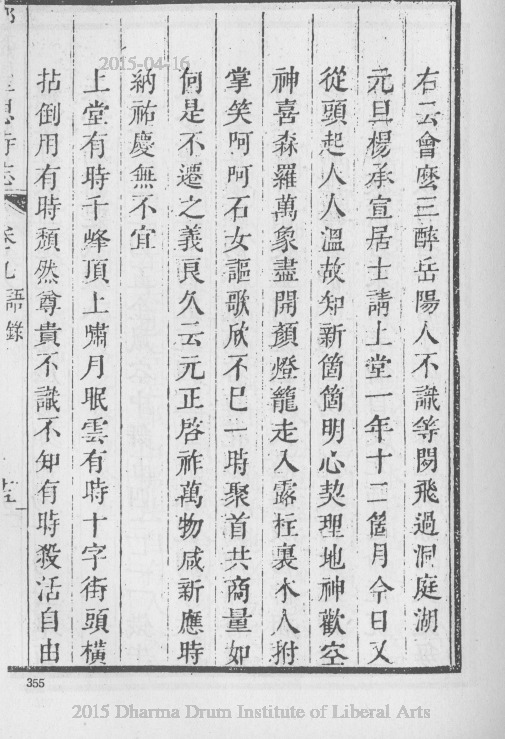 右云會麼三醉岳陽人不識等閒飛過洞庭湖
元旦楊承宣居士請上堂一年十二箇月今日又
從頭起人人溫故知新箇箇明心契理地神歡空
神喜森羅萬象盡開顏燈籠走入露柱裏木人拊
掌笑阿阿石女謳歌欣不已一時聚首共商量如
何是不遷之義良久云元正啓祚萬物咸新應時
納祐慶無不宜
上堂有時千峰頂上嘯月眠雲有時十字街頭橫
拈倒用有時頹然尊貴不識不知有時殺活自由
思寺志 卷九 語錄
2015-04-16
355
2015 Dharma Drum Institute of Liberal Arts